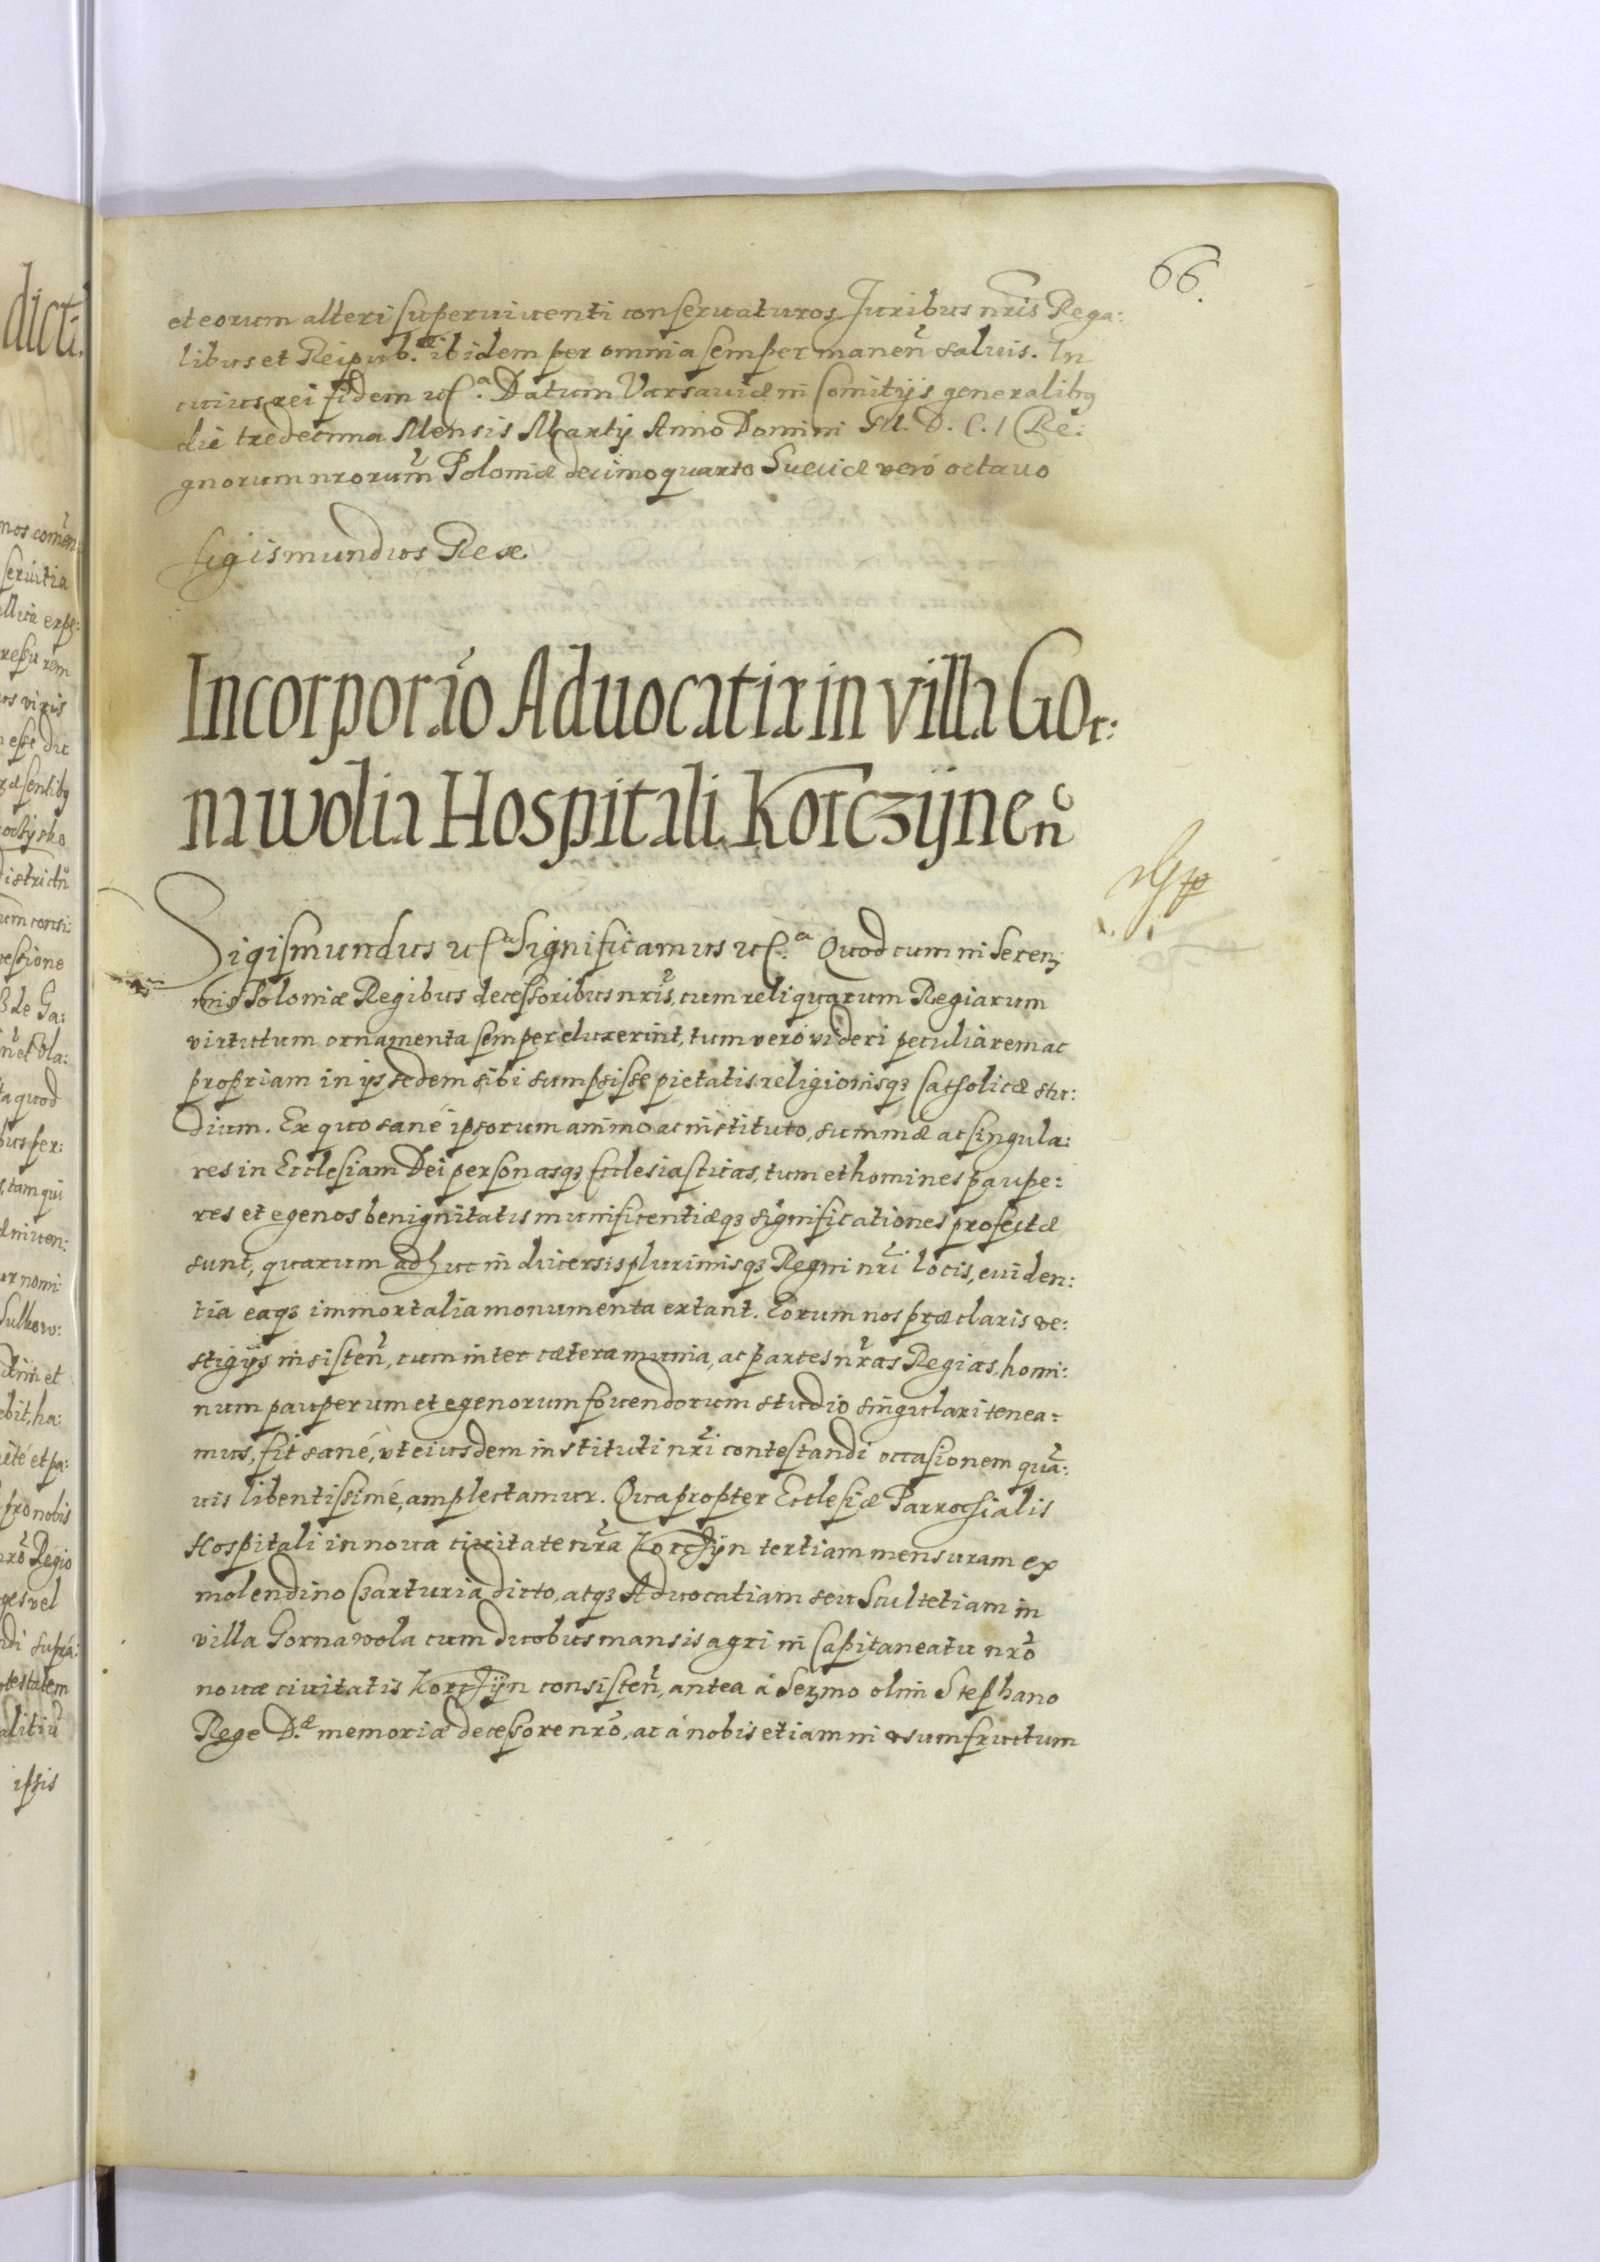 66.
et eorum alteri superuiuenti conseruaturos Juribus nr̃is Rega:
libus et Reipub.ᵃᵉ ibidem per omnia semper manen̄ saluis. In
cuius rei fidem etcᵃ. Datum Varsauiæ in Comitijs generalibꝫ
die tredecima Mensis Martij Anno Domini M. D. C. I Re:
gnorum nrorum̃ Poloniæ decimoquarto Sueciæ veró octauo
Sigismundus Rex
Incorporão Aduocatiæ in villa Gor:
nawolia Hospitali Korczÿnen̄
Sigismundus etcᵃ Significamus etcᵃ. Quod cum in Seren,
mis Poloniæ Regibus decessoribus nr̃is, cum reliquarum Regiarum
virtutum ornamenta semper eluxerint, tum veró videri peculiarem ac
propriam in ijs sedem sibi sumpsisse pietatis religionisqꝫ Catholicæ stu:
dium. Ex quo sané ipsorum animo ac instituto, summæ ac singula:
res in Ecclesiam Dei personasqꝫ Ecclesiasticas, tum et homines paupe:
res et egenos benignitatis munificentiæqꝫ significationes profectæ
sunt, quarum adhuc in diuersis plurimisqꝫ Regni nr̃i locis, euiden:
tia eaqꝫ immortalia monumenta extant. Eorum nos præclaris ve:
stigijs insisten̄, cum inter cætera munia, ac partes nr̃as Regias, homi:
num pauperum et egenorum fouendorum studio singulari tenea:
mus, fit sané, vt eiusdem instituti nr̃i contestandi occasionem quã:
uis libentissimé, amplectamur. Quapropter Ecclesiæ Parrochialis
Hospitali in noua ciuitate nr̃a Korczÿn tertiam mensuram ex
molendino Czarturia dicto, atqꝫ Aduocatiam seu Scultetiam in
villa Gornawola cum duobus mansis agri in Capitaneatu nrõ
nouæ ciuitatis Korczÿn consisten̄, antea á Serᷤmo olim Stephano
Rege D.ᵃᵉ memoriæ decessore nrõ, ac á nobis etiam in vsumfructum